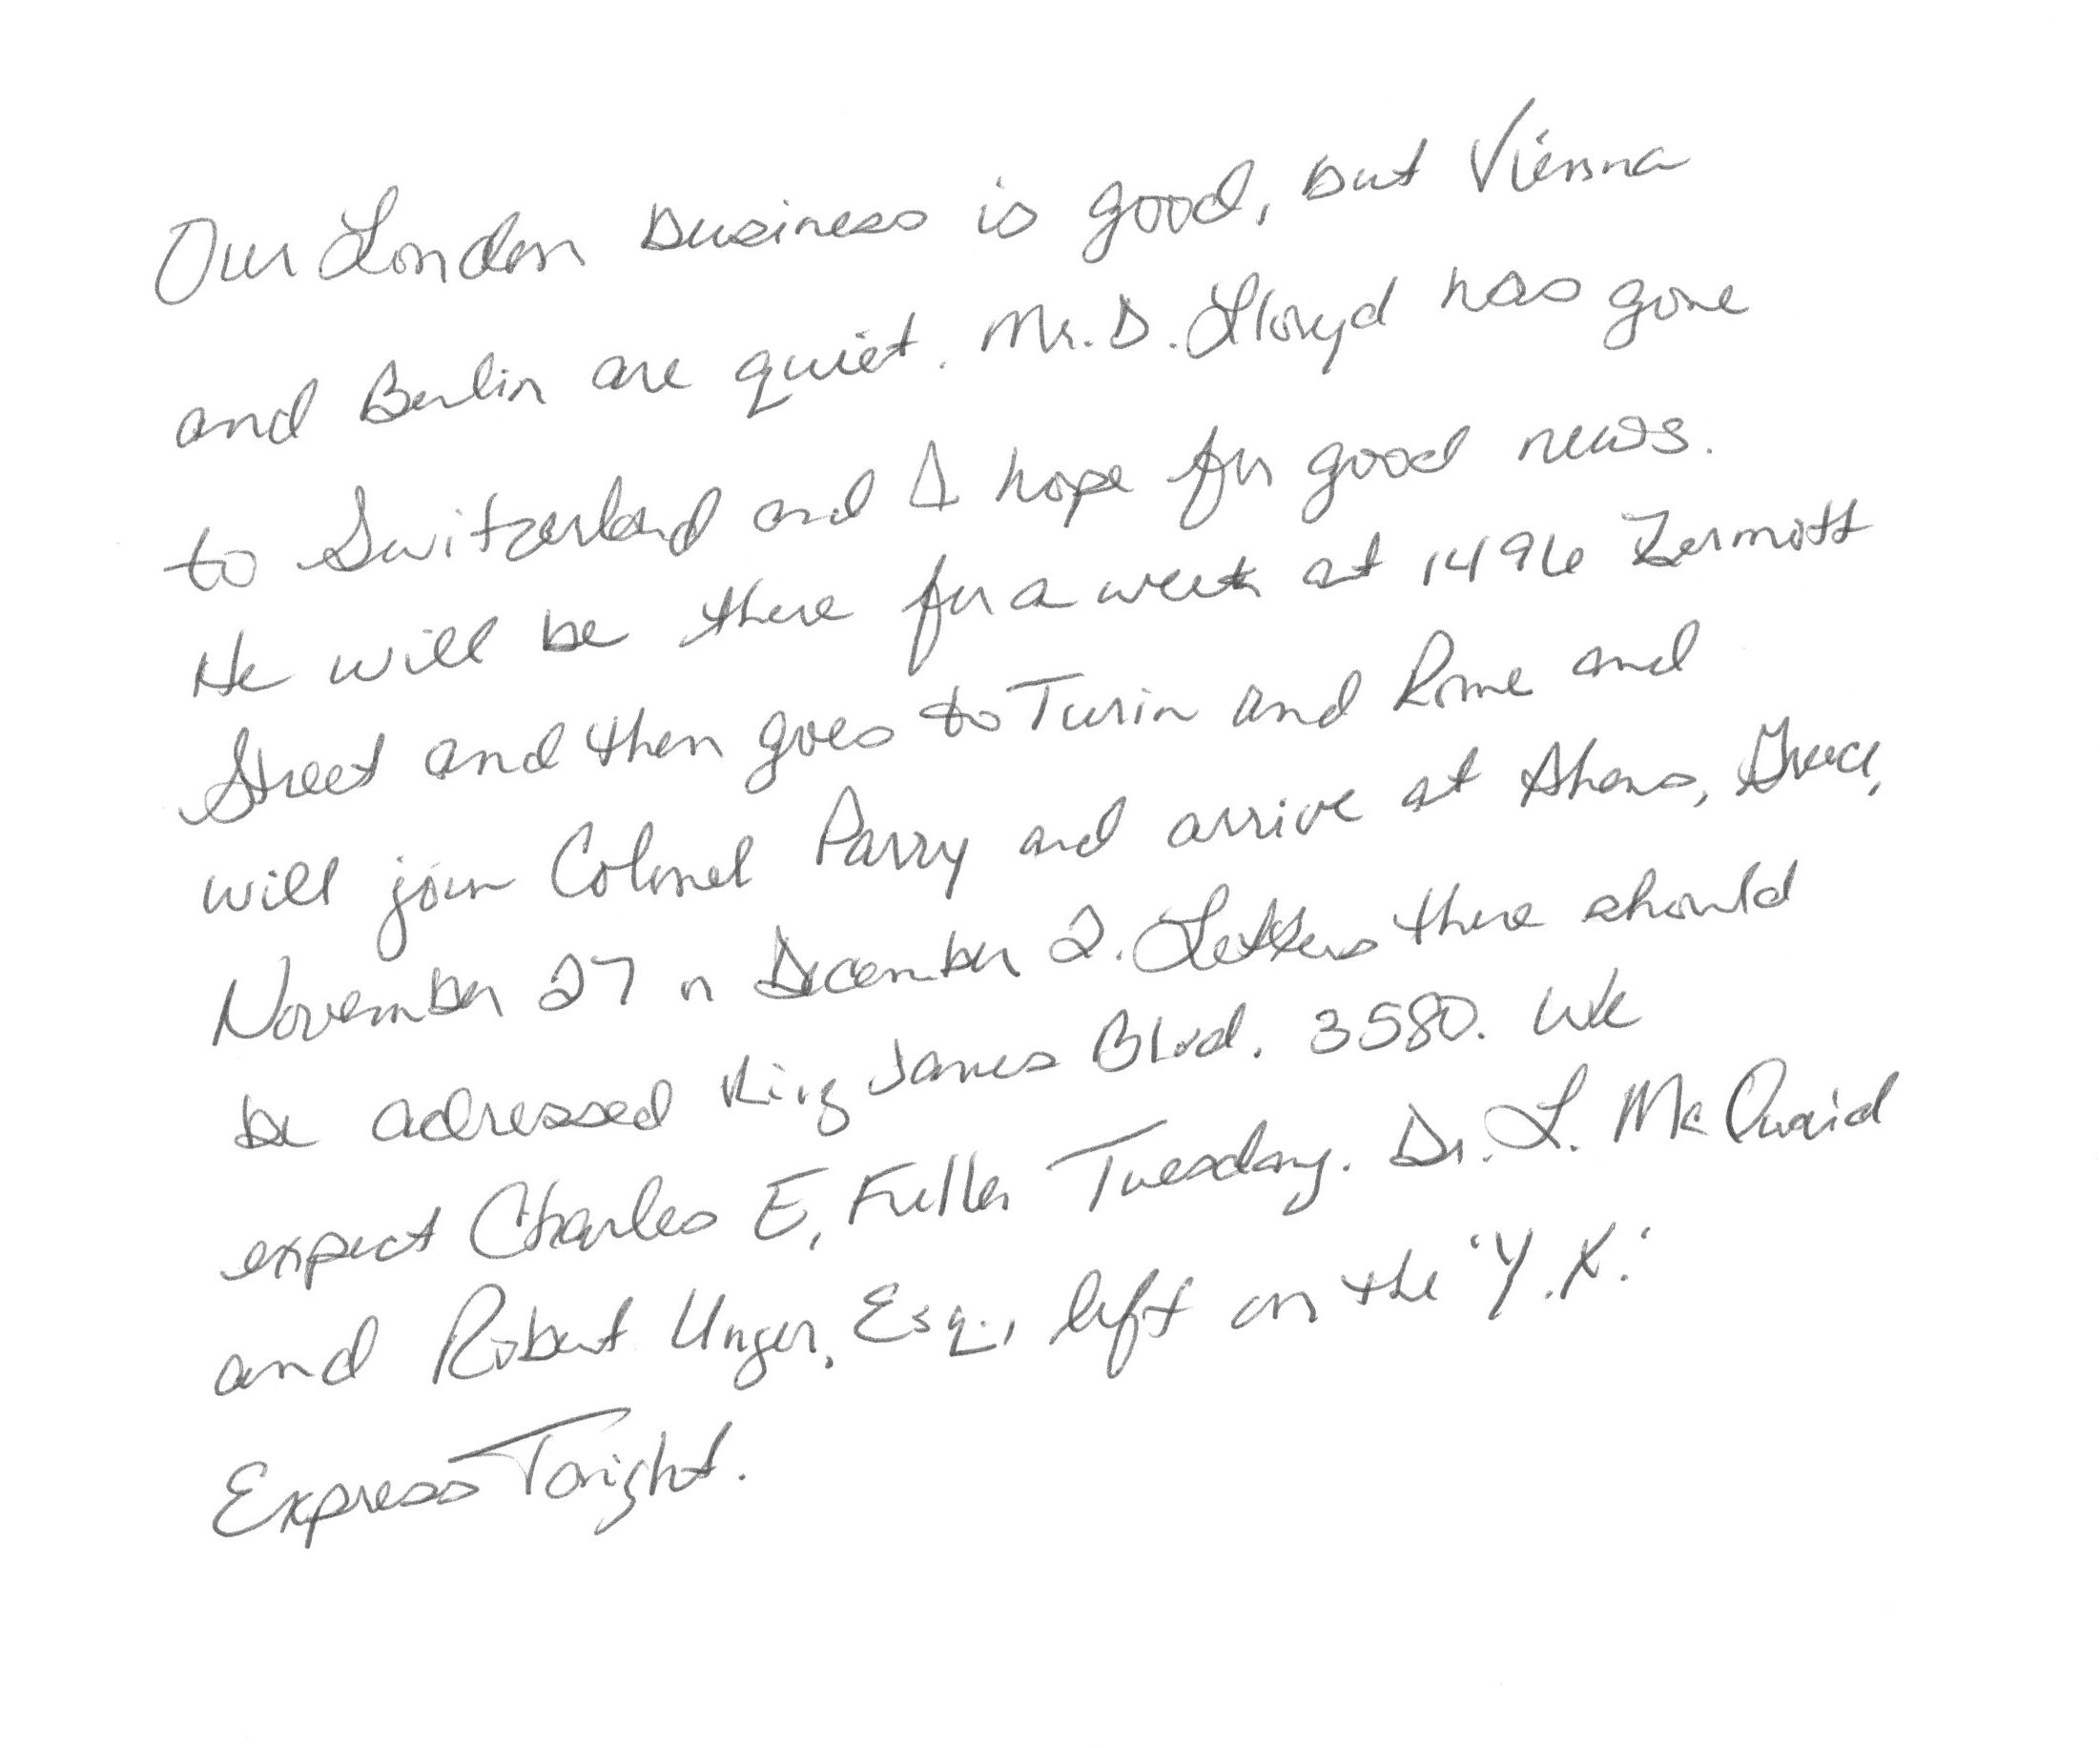 Our London business is good, but Vienna
and Berlin are quiet. Mr. D. Lloyd has gone
to Switzerland and I hope for good news.
He will be there for a week at 1496 Zermott
Street and then goes to Turin and Rome and
will join Colonel Parry and arrive at Athens, Greece,
November 27 or December 2. Letters there should
be adressed King James Blvd. 3580. We
expect Charles E. Fuller Tuesday. Dr. L. McQuaid
and Robert Unger, Esq., left on the 'Y.X.'
Express Tonight.